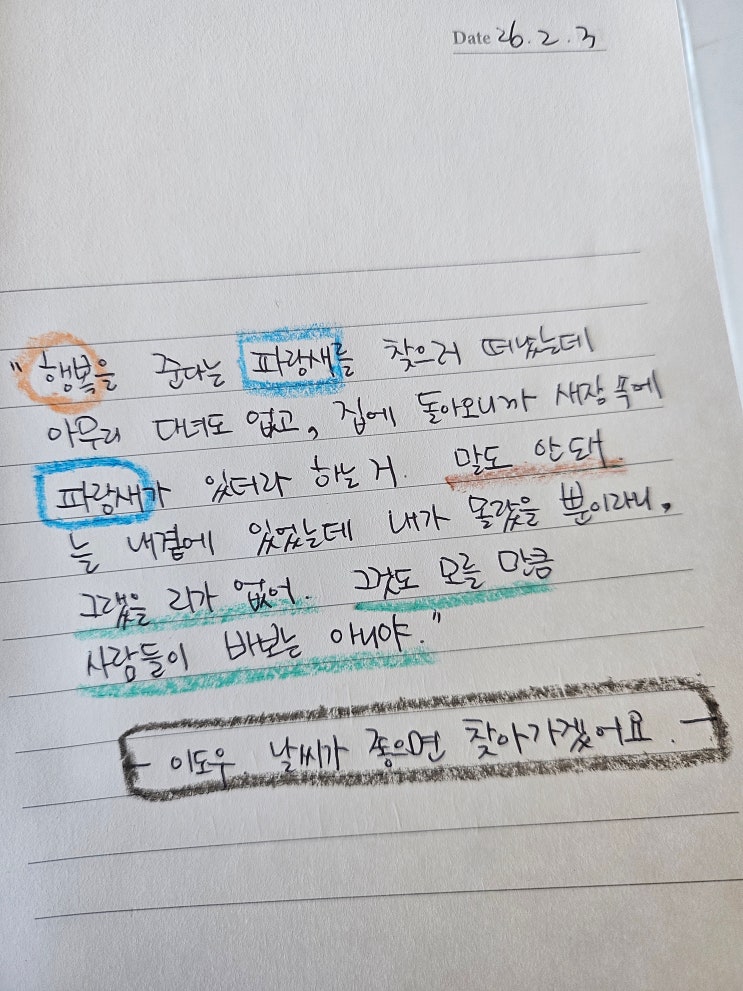 Date 26. 2. 3
"행복을 준다는 파랑새를 찾으러 떠났는데
아무리 다녀도 없고, 집에 돌아오니까 새장 속에
파랑새가 있더라 하는 거. 말도 안돼
늘 내곁에 있었는데 내가 몰랐을 뿐이라니,
그랬을 리가 없어. 그것도 모를 만큼
사람들이 바보는 아니야."
- 이도우 날씨가 좋으면 찾아가겠어요. -